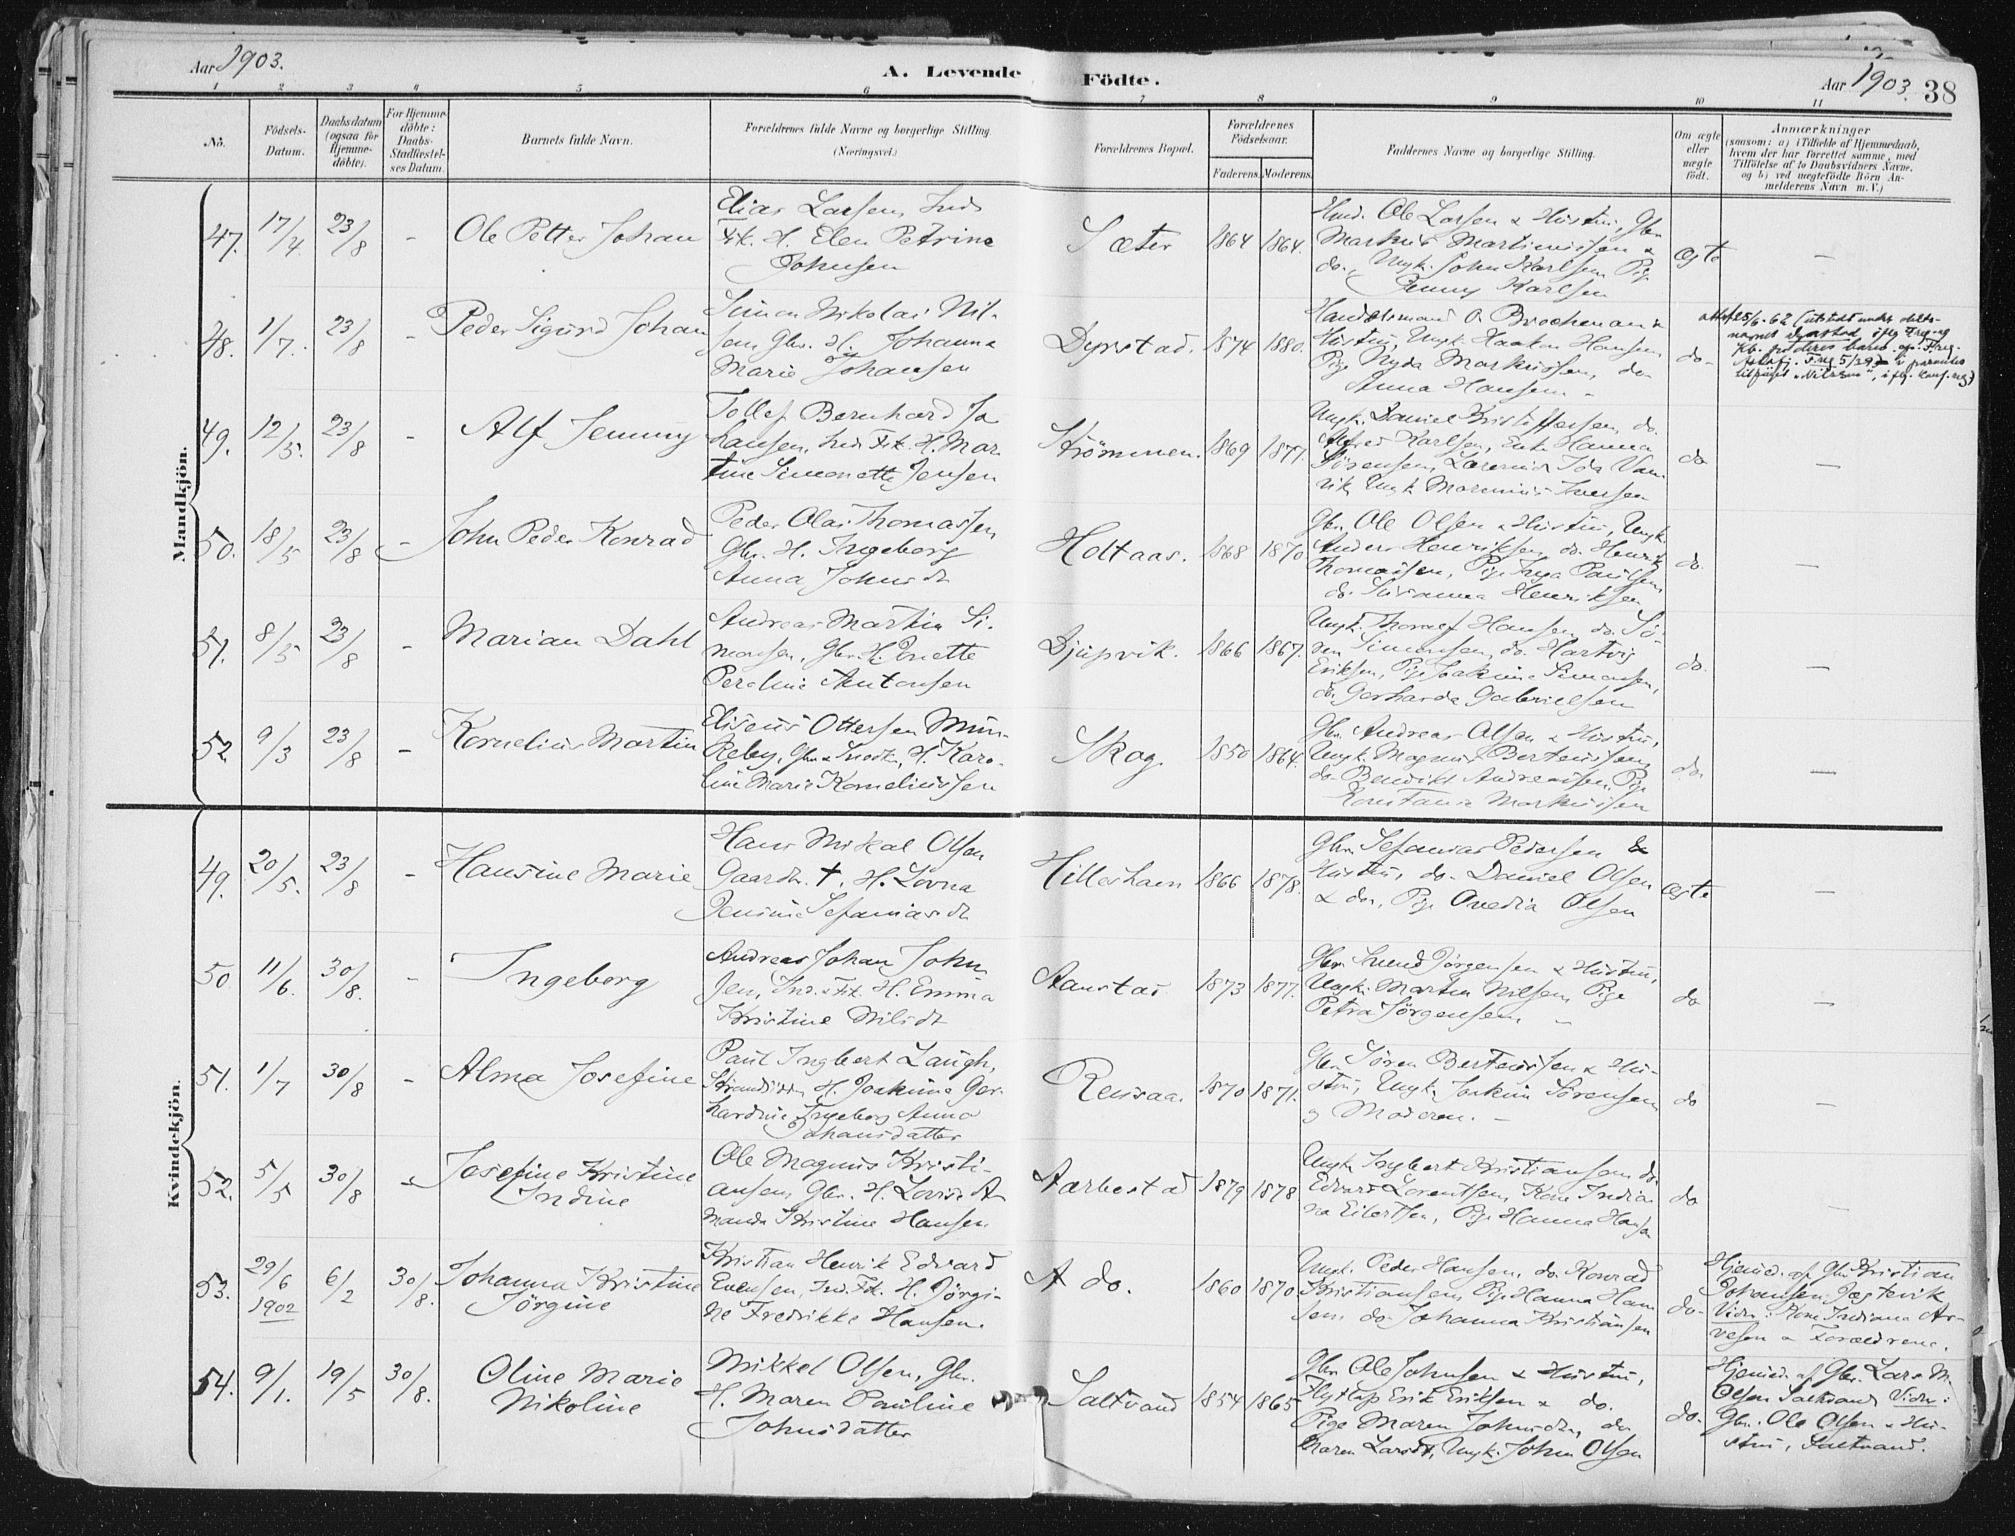 Aar 1903.
A. Levende Födte.
Aar 1903.
38
1 2 3 4 5 6 7 8 9 10 11
No.
Födsels-
Datum.
Daabsdatum
(ogsaa for
Hjemme-
döbte).
For Hjemme-
döbte:
Daabs-
Stadfæstel-
ses Datum.
Barnets fulde Navn.
Forældrenes fulde Navne og borgerlige Stilling.
(Næringsvei.)
Forældrenes Bopæl.
Forældrenes
Födselsaar.
Faderens. Moderens.
Faddernes Navne og borgerlige Stilling.
Om ægte
eller
uægte
födt.
Anmærkninger
(saasom: a) i Tilfælde af Hjemmedaab,
hvem der har forrettet samme, med
Tilföielse af to Daabsvidners Navne,
og b) ved uægtefödte Börn An-
melderens Navn m. V.)
Mandkjön.
47. 17/4. 23/8 - Ole Petter Johan
Elias Larsen, Inds
Fik. H. Elen Petrine
Johnsen
Sæter 1864 1864.
Ole Larsen & Hustru, Gbr.
Markus Martinussen &
do., Ungk. John Karlsen, Pige
Jenny Karlsen
ægte -
48. 1/7. 23/8 - Peder Sigurd Johan
Simon Nikolai Nil-
sen, Gbr. H. Johanna
Marie Johansen
Dyrstad. 1874 1880.
Handelsmand O. Brochmann &
Hustru, Ungk. Haakon Hansen
Pige Nyda Markussen, do
Anna Hansen -
do-
49. 12/5. 23/8 - Alf Jenmy
Tollef Bernhard Jo
hansen, Inds Fik. H. Mar
tine Simonette Jensen
Strömmen. 1869 1877.
Ungk. Daniel Kristoffersen, do.
Alfred Karlsen, Enke Hanna
Sörensen, Lærerinde Ida
Ungk Marenius Iversen
do -
50. 18/5 23/8 - John Peder Konrad
Peder Olai Thomassen
Gbr. H. Ingeborg
Anna Johnsdt
Holtaas. 1868 1870.
Gbr. Ole Olsen & Hustru, Ungk.
Anders Henriksen, do. Henrik
Thomassen, Pige Inga Paulsen
do. Susanna Henriksen
do. -
51. 8/5 23/8 - Marian Dahl
Andreas Martin Si-
monsen, Gbr. H. Anette
Peroline Antonsen
Djupvik. 1866 1867.
Ungk. Hansen, do. Sö-
ren Simonsen, do. Hartvig
Eriksen, Pige Joakime Simonsen,
do. Gerharda Gabrielsen
do. -
52. 9/3 23/8 - Kornelius Martin
Eliseus Ottersen Mun-
keby, Gbr & H. Karo-
line Marie Korneliussen
Skog. 1850 1864.
Gbr. Andreas Olsen & Hustru,
Ungk. Magnus Berteussen
do. Benedikt Andreassen, Pige
Konstanse Markussen
do. -
Kvindekjön.
49. 20/5. 23/8 - Hansine Marie
Hans Mikal Olsen
Gaardbr. †. H. Lovna
Jensine Sefaniasdt
Hilleshavn 1866 1878.
Gbr. Sefanias Pedersen &
Hustru, do. Daniel Olsen
& do., Pige Ovedia Olsen
ægte -
50 11/6. 30/8. - Ingeborg
Andreas Johan John-
sen, Ind. & Fik. H. Emma
Kristine Nilsdt
Aanstad. 1873 1877.
Gbr. Svend Jörgensen & Hustru,
Ungk. Martin Nilsen, Pige
Petra Jörgensen. -
do -
51. 1/7 30/8 - Alma Josefine
Paul Ingbert Laugh,
Strandsidder, H. Joakime Ger-
hardine Ingeborg Anna
Johansdatter
Rensaa. 1870 1871.
Gbr. Sören Berteussen & Hu-
stru, Ungk. Joakim Sörensen
og Moderen. -
do -
52. 5/5 30/8 - Josefine Kristine
Indine
Ole Magnus Kristi-
ansen, Gbr. H. Lovise A-
manda Kristine Hansen
Aarbostad 1879 1878
Ungk Ingbert Kristiansen, do.
Edvard Lorentsen, Kone India
na Eilertsen, Pige Hanna Hansen
do -
53. 29/6 1902 6/2 30/8. Johanna Kristine
Jörgine
Kristian Henrik Edvard
Evensen, Ind. Fik. H. Jörgi-
ne Fredrikke Hansen.
A do. 1860 1870
Ungk. Peder Hansen, do. Konrad
Kristiansen, Pige Hanna Han
sen, do. Johanna Kristiansen
do-
Hjemed. af Gbr. Kristian
Johansen
Vidn: Kone Indiana Ar-
vesen & Forældrene.
54. 9/1. 19/5 30/8. Oline Marie
Nikoline
Mikkel Olsen, Gbr.
H. Maren Pauline
Johnsdatter
Saltvand 1854 1865
Gbr. Ole Johnsen & Hustru,
Erik Eriksen & do.
Pige Maren Johnsdtr, do
Maren Larsdt, Ungk. Johan Olsen
do.
Hjemed. af Gbr. Lars M.
Olsen Saltvand Vidn:
Gbr. Ole Olsen & Hu-
stru, Saltvand.